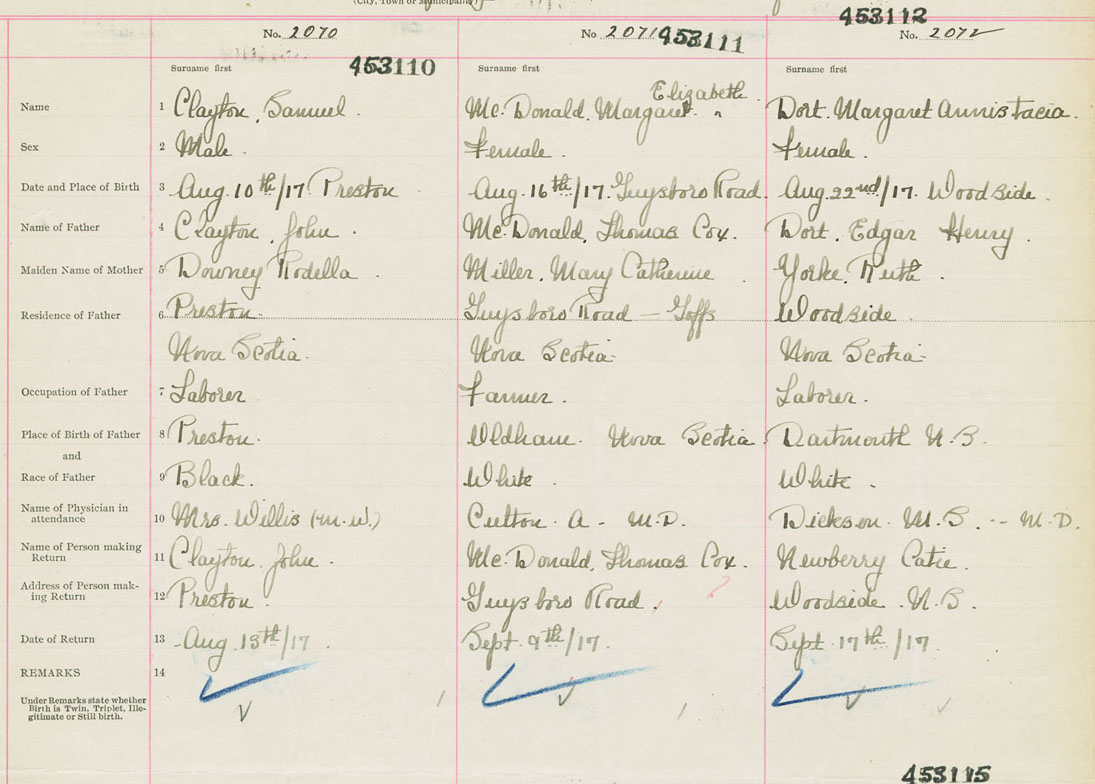 (City, Town or Municipality)
453112
No. 2070 No 2071 453111 No. 2072
Surname first 453110 Surname first Surname first
Elizabeth
Name 1 Clayton, Samuel. Mc. Donald, Margaret. " Dort. Margaret Annistacia.
Sex 2 Male. Female. Female.
Date and Place of Birth 3 Aug. 10th/17 Preston Aug. 16th/17. Guysboro Road. Aug. 22nd/17. Woodside.
Name of Father 4 Clayton, John. Mc. Donald, Thomas Cox. Dort, Edgar Henry.
Maiden Name of Mother 5 Downey Rodella. Miller, Mary Catherine. Yorke, Ruth.
Residence of Father 6 Preston. Guysboro Road — Goffs Woodside.
Nova Scotia. Nova Scotia. Nova Scotia.
Occupation of Father 7 Laborer Farmer. Laborer.
Place of Birth of Father 8 Preston. Oldham. Nova Scotia. Dartmouth N.S.
and
Race of Father 9 Black. White. White.
Name of Physician in
attendance 10 Mrs. Willis (m.w.) Culton. A - M.D. Dickson. M.B. - M.D.
Name of Person making
Return 11 Clayton, John. Mc. Donald, Thomas Cox. Newberry Catie.
Address of Person mak-
ing Return 12 Preston. Guysboro Road. Woodside. N.S.
Date of Return 13 Aug. 13th/17. Sept. 9th/17. Sept. 17th/17.
REMARKS 14
Under Remarks state whether
Birth is Twin, Triplet, Ille-
gitimate or Still birth.
453115